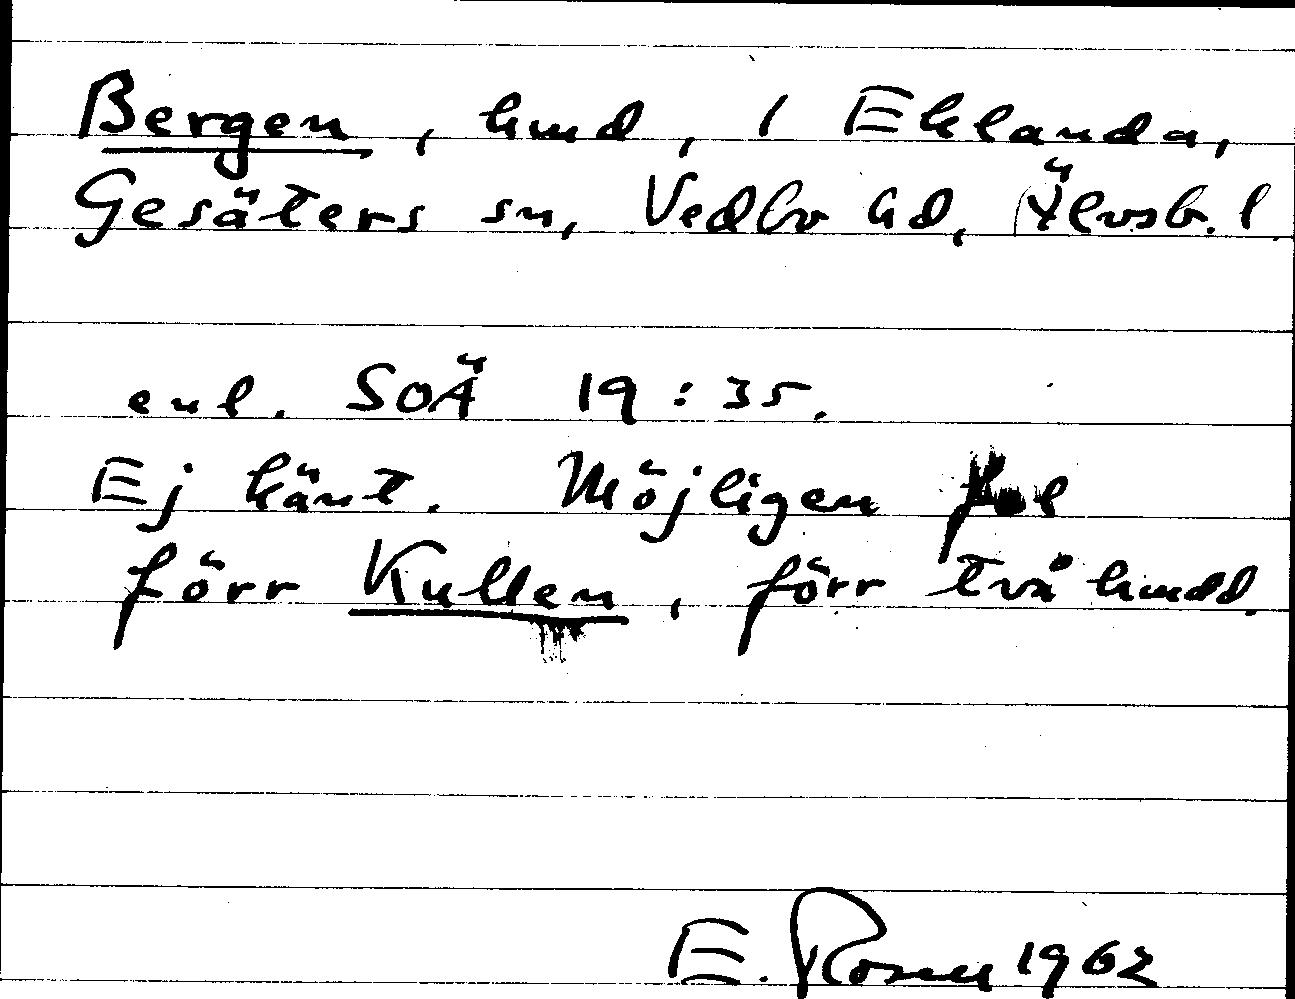 Bergen, hmd, 1 Eklanda,
Gesäters sn, Vedbo hd, Älvsb. l.
enl. SOÄ 19:35.
Ej känt. Möjligen
förr Kullen, förr två hmdd.
E. Rosell 1962